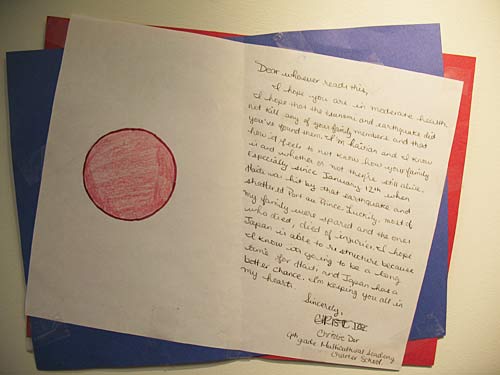 Dear whoever reads this,
I hope you are in moderate health.
I hope that the tsunami and earthquake did
not kill any of your family members and that
you've found them. I'm haitian and I know
how it feels to not know how your family
is and whether or not they're still alive.
Especially since January 12th when
Haiti was hit by that earthquake and
shattered Port au Prince. Luckily, most of
my family were spared and the ones
who died, died of injuries. I hope
Japan is able to restructure because
I know it's going to be a long
time for Haiti and Japan has a
better chance. I'm keeping you all in
my hearts.
Sincerely,
Christe Dor
9th grade Multicultural Academy
Charter School.